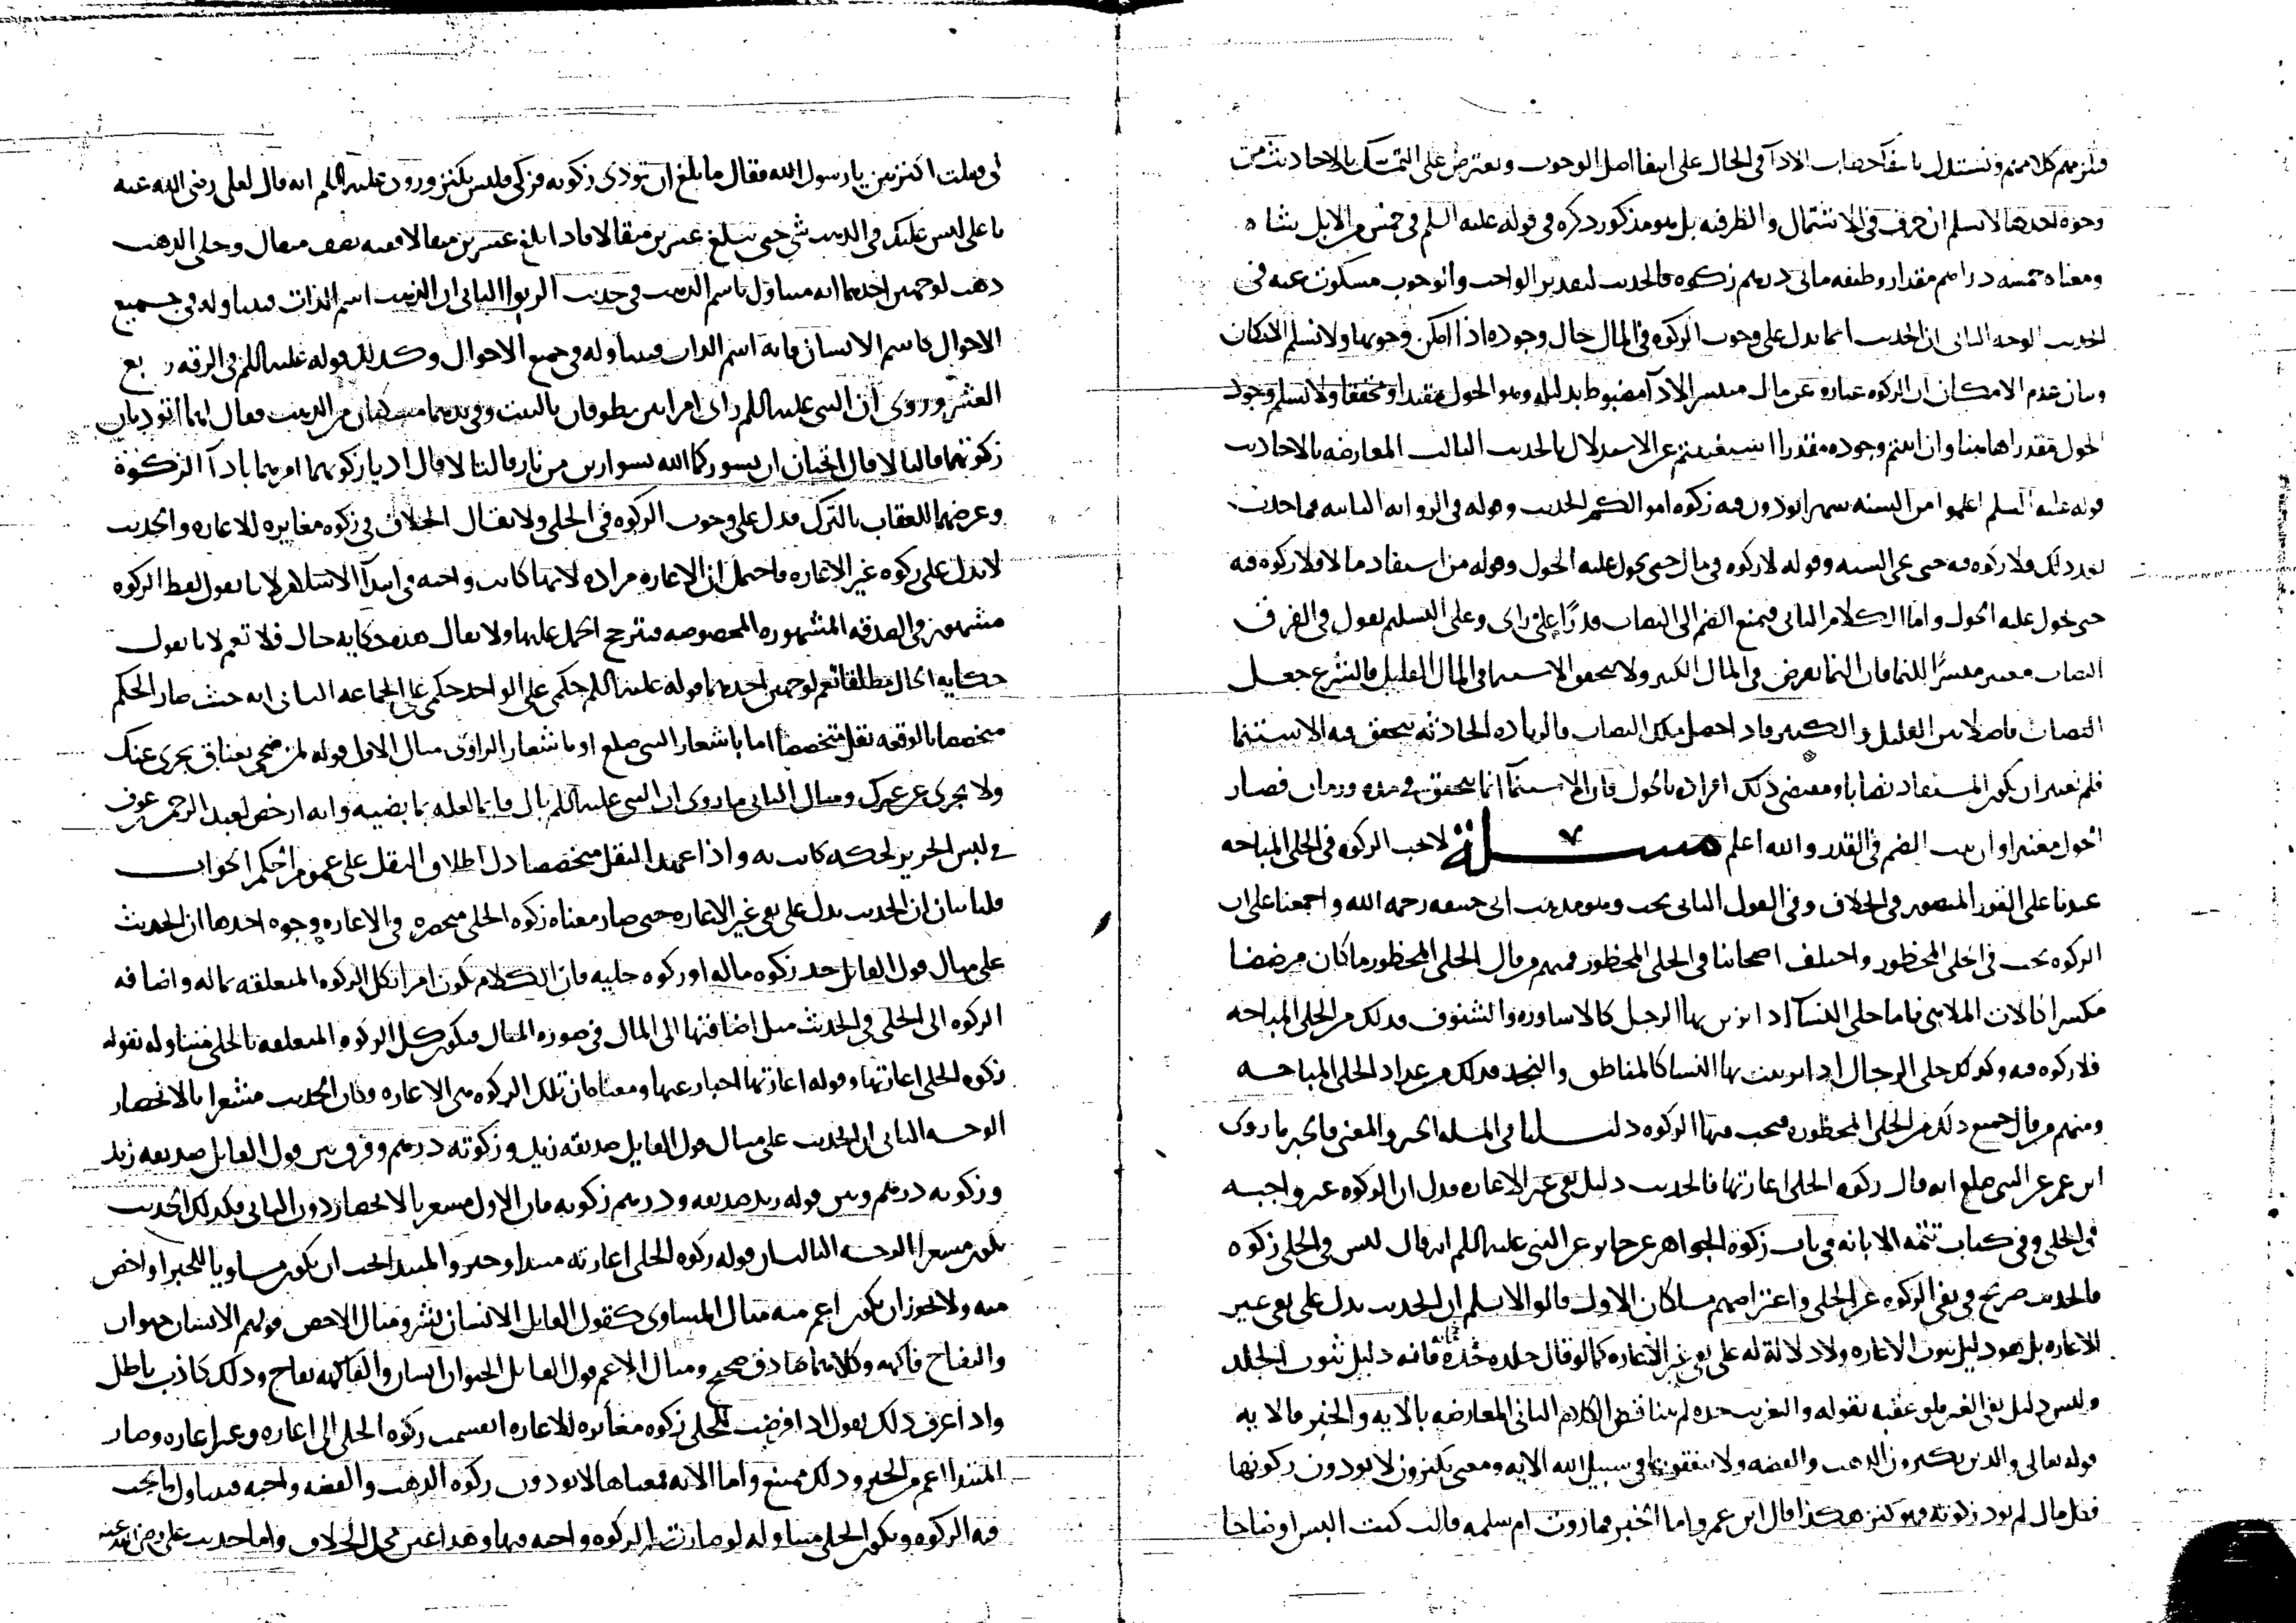 فنلزمهم كلامهم ونستدل بانتفاء خطاب الادآ في الحال على انتفا اصل الوجوب ونعترض على التمسك بالاحاديث من
وجوه احدها لا نسلم ان حرف في للاشتمال والظرفيه بل هو مذكور ذكره في قوله عليه السلم في خمس من الابل شاه
ومعناه خمسه دراهم مقدار وظيفه مائى درهم زكوه فالحديث لتقدير الواجب والوجوب مسكوت عنه في
الحديث الوجه الثانى ان الحديث انما يدل على وجوب الزكوه في المال حال وجوده اذا امكن وجوبها ولا نسلم الامكان
وبيان عدم الامكان ان الزكوه عباره عن مال متيسر الادآ مضبوط بدليله وهو الحول مقدرا او محققا ولا نسلم وجود
الحول مقدرا هاهنا وان اثبتم وجوده مقدرا استغنيتم عن الاستدلال بالحديث الثالث المعارضه بالاحاديث
قوله عليه السلم اعلموا من السنه شهرا تودون فيه زكوه اموالكم الحديث وقوله في الروايه الثانيه فما حدث
بعد ذلك فلا زكوه فيه حتى تجى السنه وقوله لا زكوه في مال حتى يحول عليه الحول وقوله من استفاد مالا فلا زكوه فيه
حتى يحول عليه الحول واما الكلام الثانى فيمنع الضم الى النصاب قدرًا على راى وعلى التسليم نقول في الفرق
النصاب معتبر ميسرًا للنما فان النما يعرض في المال الكثير ولا يتحقق الاستنما في المال القليل فالشرع جعل
النصاب فاصلا بين القليل والكثير فاذا حصل ملك النصاب فالزياده الحادثه يتحقق فيه الاستنما
فلم يعتبر ان يكون المستفاد نصابا ومقتضى ذلك افراده بالحول فان الاستنمآ انما يتحقق في مده وزمان فصار
الحول معتبرا وان ثبت الضم في القدر والله اعلم مسـلة لا تجب الزكوه في الحلى المباحه
عندنا على القول المنصور في الخلاف وفي القول الثانى تجب وهو مذهب ابى حنيفه رحمه الله واجمعنا على ان
الزكوه تجب في الحلى المحظور واختلف اصحابنا في الحلى المحظور فمنهم من قال الحلى المحظور ما كان مرضضا
مكسرا كالات الملاهى فاما حلى النسآ اذا تزين بها الرجل كالاساوره والشنوف فذلك من الحلى المباحه
فلا زكوه فيه وكذلك حلى الرجال اذا تزينت بها النسا كالمناطق والنجد فذلك من عداد الحلى المباحه
ومنهم من قال جميع ذلك من الحلى المحظوره فتجب فيها الزكوه دليلنا في المسله الخبر والمعنى فالخبر ما روى
ابن عمر عن النبى صلع انه قال زكوه الحلى اعارتها فالحديث دليل نفى غير الاعاره فدل ان الزكوه غير واجبه
في الحلى وفي كتاب تتمه الابانه في باب زكوة الجواهر عن جابر عن النبى عليه السلم انه قال ليس في الحلى زكوه
فالحديث صريح في نفى الزكوه عن الحلى واعتراضهم مسلكان الاول قالوا لا نسلم ان الحديث يدل على نفى غير
الاعاره بل هو دليل ثبوت الاعاره ولا دلالة له على نفى غير الاعاره كما لو قال جلده حده مائة فانه دليل ثبوت الجلد
وليس دليل نفى الغير فلو عقبه بقوله والتغريب حده لم يتناقض الكلام الثانى المعارضه بالايه والخبر فالايه
قوله تعالى والذين يكنزون الذهب والفضه ولا ينفقونها في سبيل الله الايه ومعنى يكنزون لا يودون زكوتها
فكل مال لم تود زكوته فهو كنز هكذا قال ابن عمر واما الخبر فما روت ام سلمه قالت كنت البس اوضاحا
لى فقلت اكنز هى يا رسول الله فقال ما بلغ ان تودى زكوته فزكى فليس بكنز وروى عليه السلم انه قال لعلى رضى الله عنه
يا على ليس عليك في الذهب شى حتى يبلغ عشرين مثقالا فاذا بلغ عشرين مثقالا ففيه نصف مثقال وحلى الذهب
ذهب لوجهين احدهما انه متناول باسم الذهب في حديث الربوا الثانى ان الذهب اسم الذات فيتناوله في جميع
الاحوال كاسم الانسان فانه اسم الذات فيتناوله في جميع الاحوال وكذلك قوله عليه السلم في الرقه ربع
العشر وروى ان النبى عليه السلم راى امراتين يطوفان بالبيت وفي يديهما مسكتان من الذهب فقال لهما اتوديان
زكوتهما قالتا لا قال اتحبان ان يسوركما الله بسوارين من نار قالتا لا قال اديا زكوتهما امرهما بادآ الزكوة
وعرضهما للعقاب بالترك فدل على وجوب الزكوه في الحلى ولا يقال الخلاف في زكوه مغايره للاعاره والحديث
لا يدل على زكوه غير الاعاره فاحتمل ان الاعاره مراده لانها كانت واجبه في ابتدآ الاسلام لانا نقول لفظ الزكوه
مشهوره في الصدقه المشهوره المخصوصه فيترجح الحمل عليها ولا يقال هذه حكايه حال فلا تعم لانا نقول
حكايه الحال مطلقا تعم لوجهين احدهما قوله عليه السلم حكمى على الواحد حكمى على الجماعه الثانى انه حيث صار الحكم
مخصصا بالوقعه نقل مخصصا اما باشعار النبى صلع او باشعار الراوى مثال الاول قوله لمن ضحى بعناق يجرى عنك
ولا يجرى عن غيرك ومثال الثانى ما روى ان النبى عليه السلم بال قايما لعله بمابضيه وانه ارخص لعبد الرحمن بن عوف
في لبس الحرير لحكه كانت به واذا عهد النقل مخصصا دل اطلاق النقل على عموم الحكم الجواب
قلنا بيان ان الحديث يدل على نفى غير الاعاره حتى صار معناه زكوه الحلى منحصره في الاعاره وجوه احدها ان الحديث
على مثال قول القائل خذ زكوه ماله او زكوه حليه فان الكلام يكون امرا بكل الزكوه المتعلقه بماله واضافه
الزكوه الى الحلى في الحديث مثل اضافتها الى المال في صوره المثال فيكون كل الزكوه المتعلقه بالحلى متناوله بقوله
زكوه الحلى اعارتها وقوله اعارتها اخبار عنها ومعناه ان تلك الزكوه هى الاعاره وكان الحديث مشعرا بالانحصار
الوجه الثانى ان الحديث على مثال قول القايل صديقه زيد وزكوته درهم وفرق بين قول القايل صديقه زيد
وزكوته درهم وبين قوله زيد صديقه ودرهم زكوته فان الاول مشعر بالانحصار دون الثانى فكذلك الحديث
يكون مشعرا الوجه الثالث ان قوله زكوه الحلى اعارته مبتدا وخبر والمبتدا يجب ان يكون مساويا للخبر او اخص
منه ولا يجوز ان يكون اعم منه مثال المساوى كقول القايل الانسان بشر ومثال الاخص قولهم الانسان حيوان
والتفاح فاكهه وكلاهما صادق صحيح ومثال الاعم قول القايل الحيوان انسان والفاكهه تفاح وذلك كاذب باطل
واذا عرف ذلك نقول اذا فرضت للحلى زكوه مغايره للاعاره انقسمت زكوه الحلى الى اعاره وغير اعاره وصار
المبتدا اعم من الخبر وذلك ممتنع واما الايه فمعناها لا يودون زكوه الذهب والفضه واجبه فيتناول ما يجب
فيه الزكوه ويكون الحلى متناوله لو صارت الزكوه واجبه فيها وهذا عين محل الخلاف واما حديث على رضى الله عنه